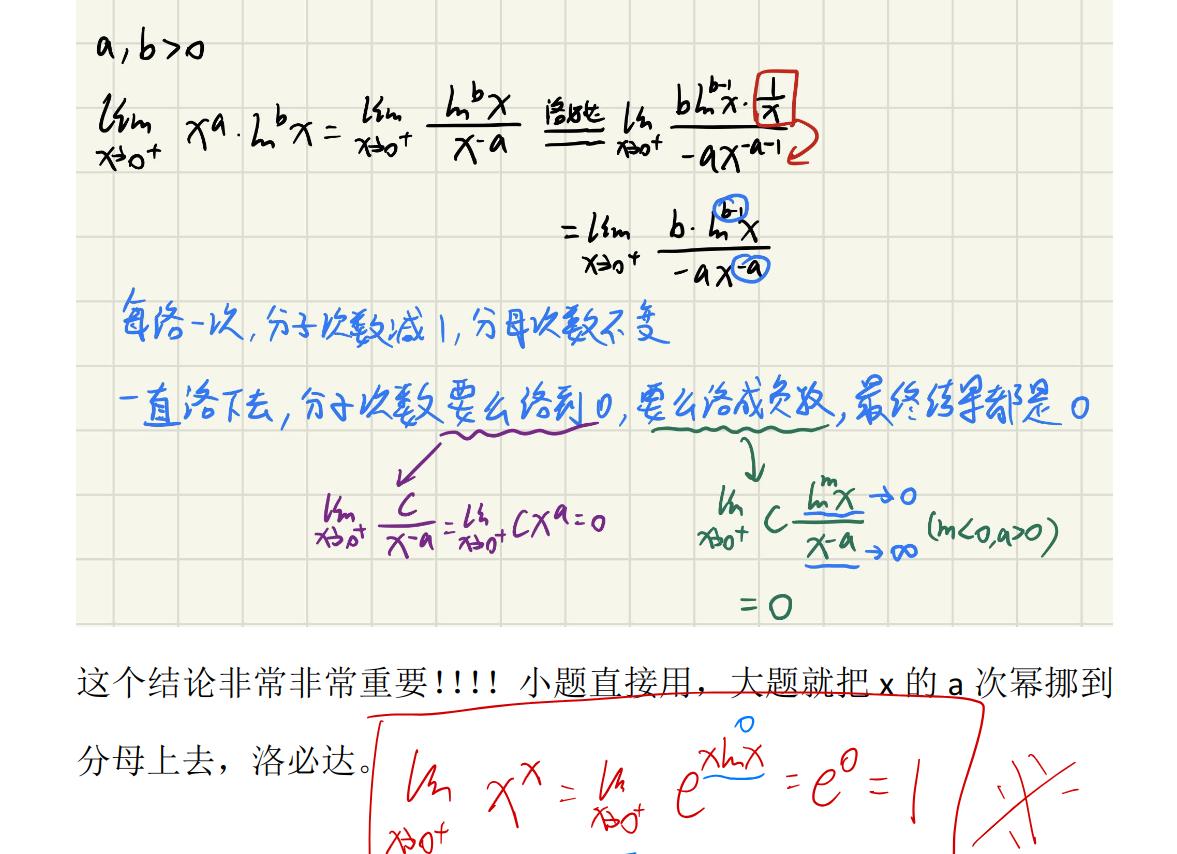 a,b>0
lim x→0⁺ xᵃ·lnᵇx = lim x→0⁺ lnᵇx / x⁻ᵃ 洛必达 lim x→0⁺ b lnᵇ⁻¹x · 1/x / -ax⁻ᵃ⁻¹
= lim x→0⁺ b·lnᵇ⁻¹x / -ax⁻ᵃ
每洛一次,分子次数减1,分母次数不变
一直洛下去,分子次数要么洛到0,要么洛成负数,最终结果都是0
lim x→0⁺ C / x⁻ᵃ = lim x→0⁺ Cxᵃ = 0
lim x→0⁺ C lnᵐx / x⁻ᵃ →0 →∞ (m<0,a>0)
= 0
这个结论非常非常重要!!!! 小题直接用，大题就把 x 的 a 次幂挪到
分母上去，洛必达。
0
lim x→0⁺ xˣ = lim x→0⁺ e^(xlnx) = e⁰ = 1